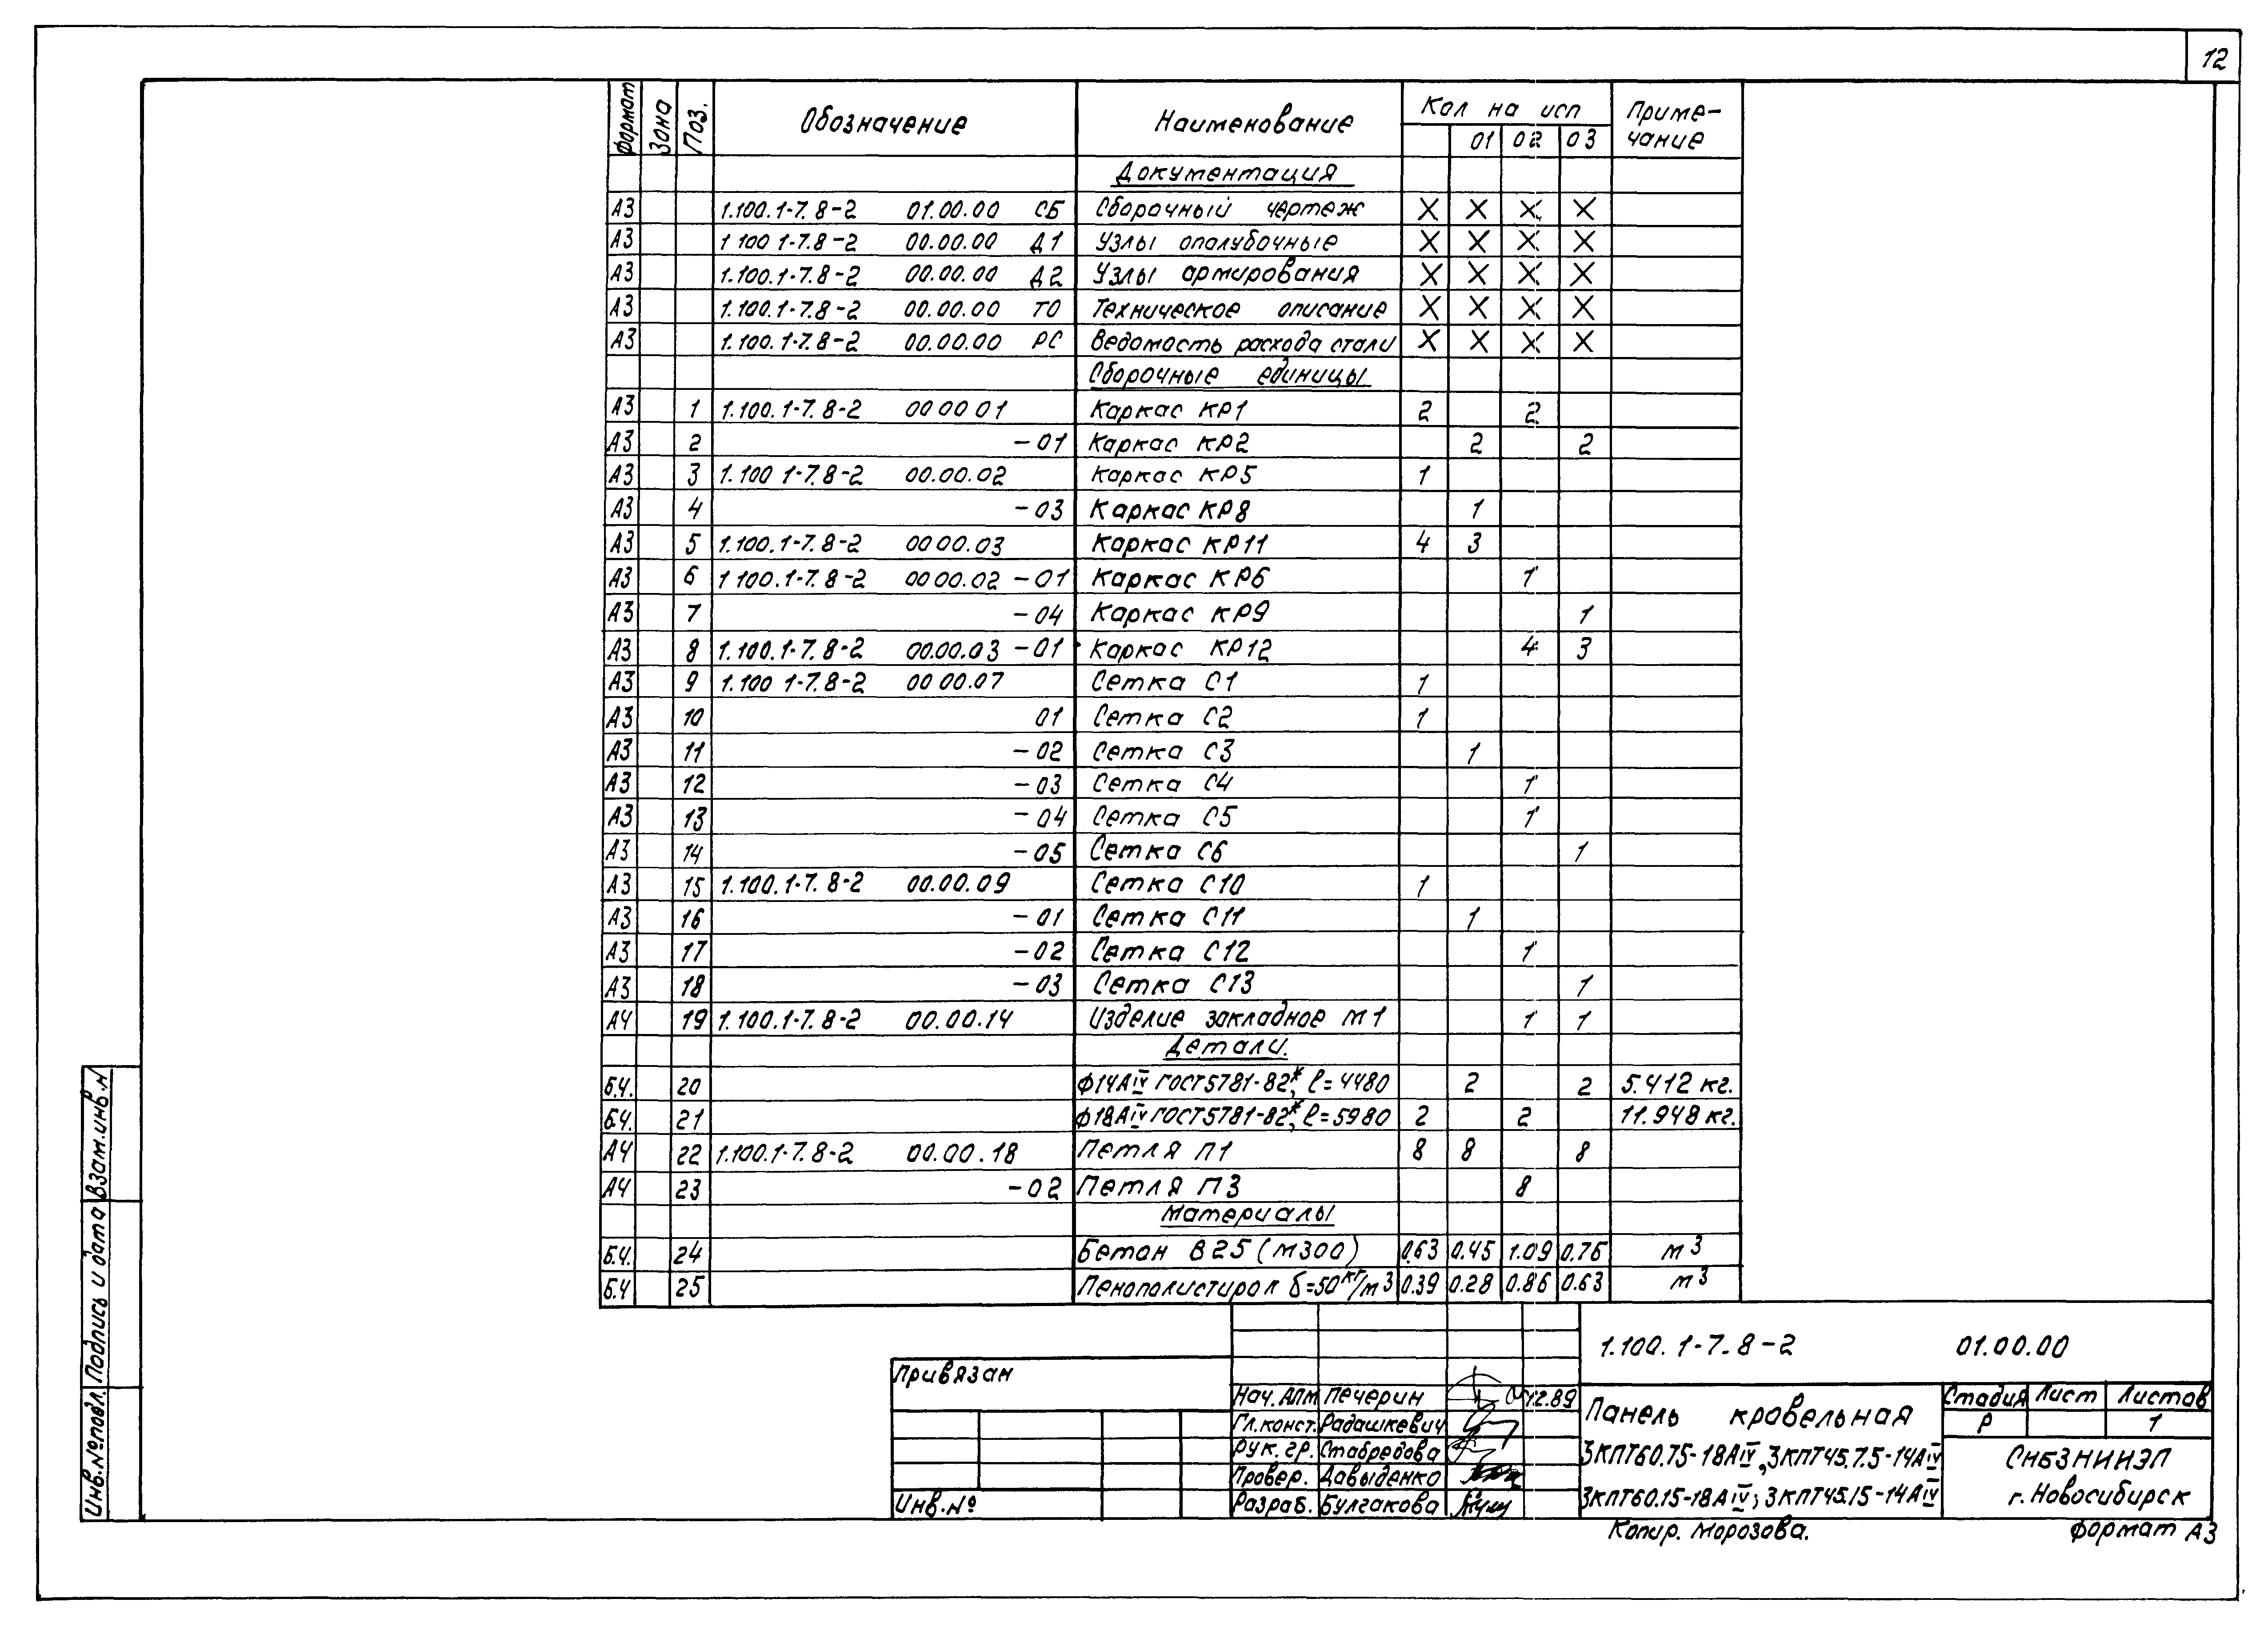 12
Формат Зона Поз. Обозначение Наименование Кол на исп Приме-
01 02 03 чание
Документация
А3 1.100.1-7.8-2 01.00.00 СБ Сборочный чертеж X X X X
А3 1 100 1-7.8-2 00.00.00 Д1 Узлы опалубочные X X X X
А3 1.100.1-7.8-2 00.00.00 Д2 Узлы армирования X X X X
А3 1.100.1-7.8-2 00.00.00 ТО Техническое описание X X X X
А3 1.100.1-7.8-2 00.00.00 РС Ведомость расхода стали X X X X
Сборочные единицы
А3 1 1.100.1-7.8-2 00 00 01 Каркас КР1 2 2
А3 2 -01 Каркас КР2 2 2
А3 3 1.100 1-7.8-2 00.00.02 Каркас КР5 1
А3 4 -03 Каркас КР8 1
А3 5 1.100.1-7.8-2 00 00.03 Каркас КР11 4 3
А3 6 1 100.1-7.8-2 00 00.02 -01 Каркас КР6 1
А3 7 -04 Каркас КР9 1
А3 8 1.100.1-7.8-2 00.00.03 -01 Каркас КР12 4 3
А3 9 1.100 1-7.8-2 00 00.07 Сетка С1 1
А3 10 01 Сетка С2 1
А3 11 -02 Сетка С3 1
А3 12 -03 Сетка С4 1
А3 13 -04 Сетка С5 1
А3 14 -05 Сетка С6 1
А3 15 1.100.1-7.8-2 00.00.09 Сетка С10 1
А3 16 -01 Сетка С11 1
А3 17 -02 Сетка С12 1
А3 18 -03 Сетка С13 1
А4 19 1.100.1-7.8-2 00.00.14 Изделие закладное М1 1 1
Детали.
Б.Ч. 20 Ф14АIV ГОСТ5781-82*, ℓ=4480 2 2 5.412 кг.
Б.Ч. 21 Ф18АIV ГОСТ5781-82*, ℓ=5980 2 2 11.948 кг.
А4 22 1.100.1-7.8-2 00.00.18 Петля П1 8 8 8
А4 23 -02 Петля П3 8
Материалы
Б.Ч. 24 Бетон В25 (М300) 0.63 0.45 1.09 0.76 м3
Б.Ч 25 Пенополистирол δ=50кг/м3 0.39 0.28 0.86 0.63 м3
1.100.1-7.8-2 01.00.00
Привязан
Нач. АПМ Печерин 12.89
Гл.конст. Радашкевич
Рук. гр. Стабредова
Провер. Давыденко
Разраб. Булгакова
Инв.№
Панель кровельная
3КПТ60.75-18АIV, 3КПТ45.7.5-14АIV
3КПТ60.15-18АIV; 3КПТ45.15-14АIV
Стадия Лист Листов
Р 1
СибЗНИИЭП
г. Новосибирск
Копир. Морозова. Формат А3
Инв.№подл. Подпись и дата Взам.инв.№